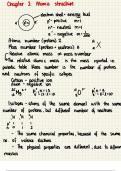 Chapter 2: Atomic structure
electron shell - energy level
p⁺: positive m=1
n⁰: neutral m=1
e⁻: negative m=
Atomic number (proton): Z
Mass number (protons + neutrons): A
A
X
Z
- Relative atomic mass ≠ mass number
- The relative atomic mass is the mass reported in
periodic table. Mass number is the number of protons
and neutrons of specific isotopes
Cation = positive ion
Anion = negative ion
Isotopes - atoms of the same element with the same
number of protons, but different number of neutrons
- The same chemical properties, because of the same
no. of valence electrons
- The physical properties are different, due to different
masses